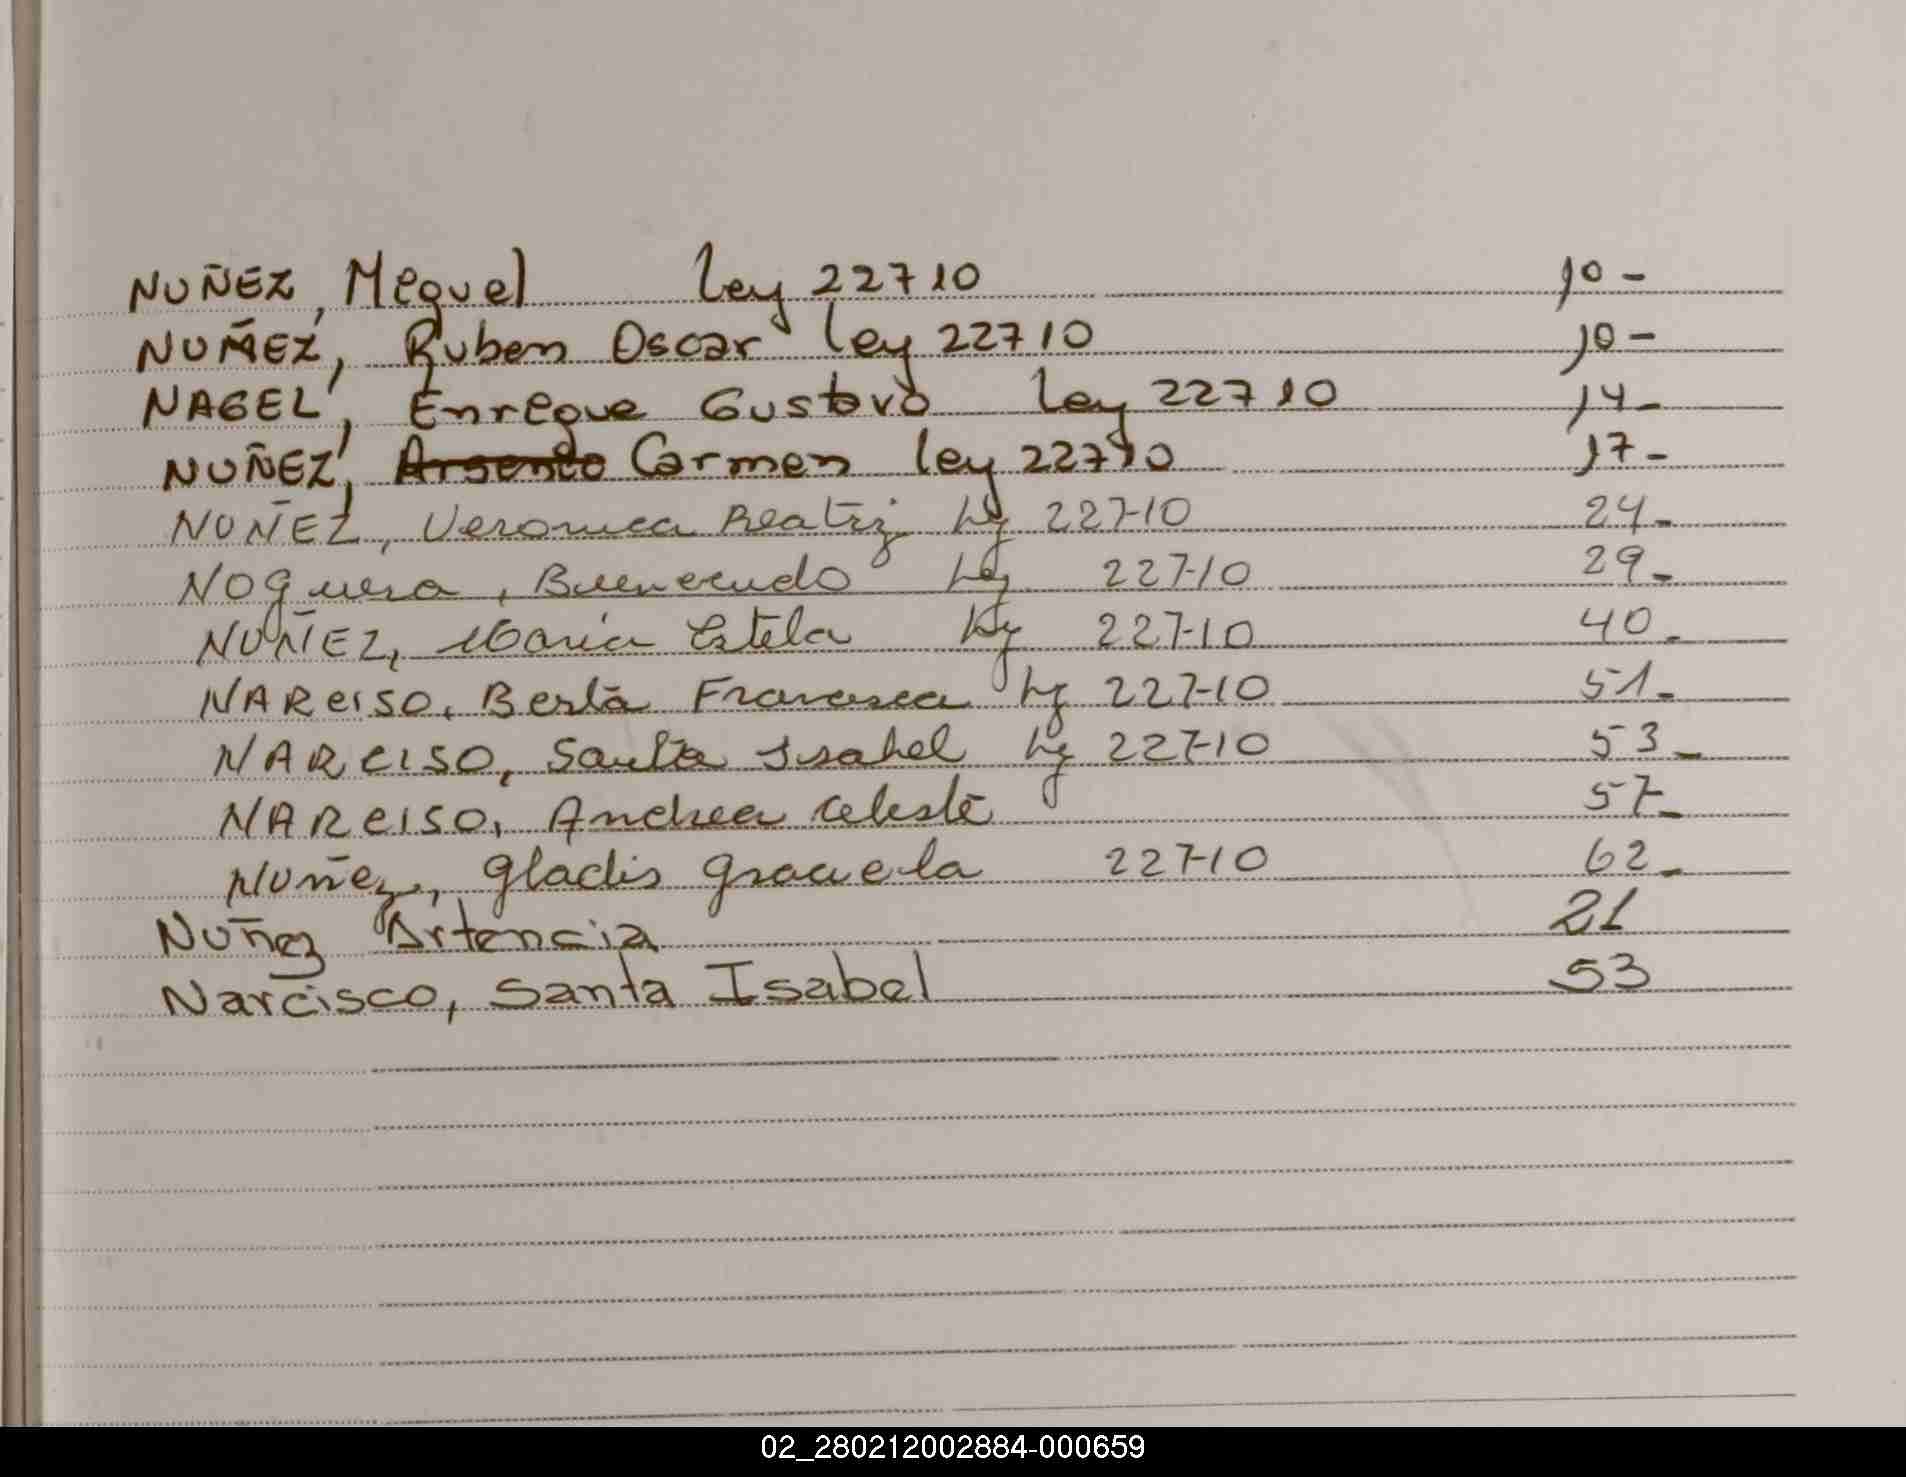 NUÑEZ, Miguel ley 22710 10-
NUÑEZ, Ruben Oscar ley 22710 10-
NAGEL, Enrique Gustavo ley 22710 14-
NUÑEZ, Carmen ley 22710 17-
NUÑEZ, Veronica Beatriz ley 22710 24-
Noguera, Buenerudo ley 22710 29-
NUÑEZ, Maria Estela ley 22710 40-
NARCISO, Berta Francisca ley 22710 51-
NARCISO, Santa Isabel ley 22710 53-
NARCISO, Andrea Celeste 57-
Nuñez, Gladis Graciela 22710 62-
Nuñez Artencia 21
Narcisco, Santa Isabel 53
02_280212002884-000659